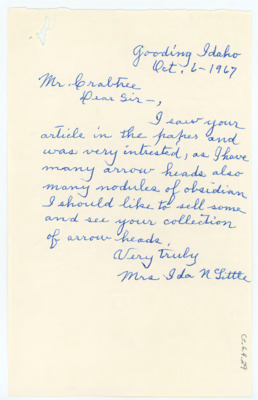 Gooding Idaho
Oct. 6-1967
Mr. Crabtree
Dear Sir-,
I saw your
article in the paper and
was very intrested, as I have
many arrow heads also
many nodules of obsidian
I should like to sell some
and see your collection
of arrow heads.
Very truly
Mrs Ida N Little
Cc.64.29